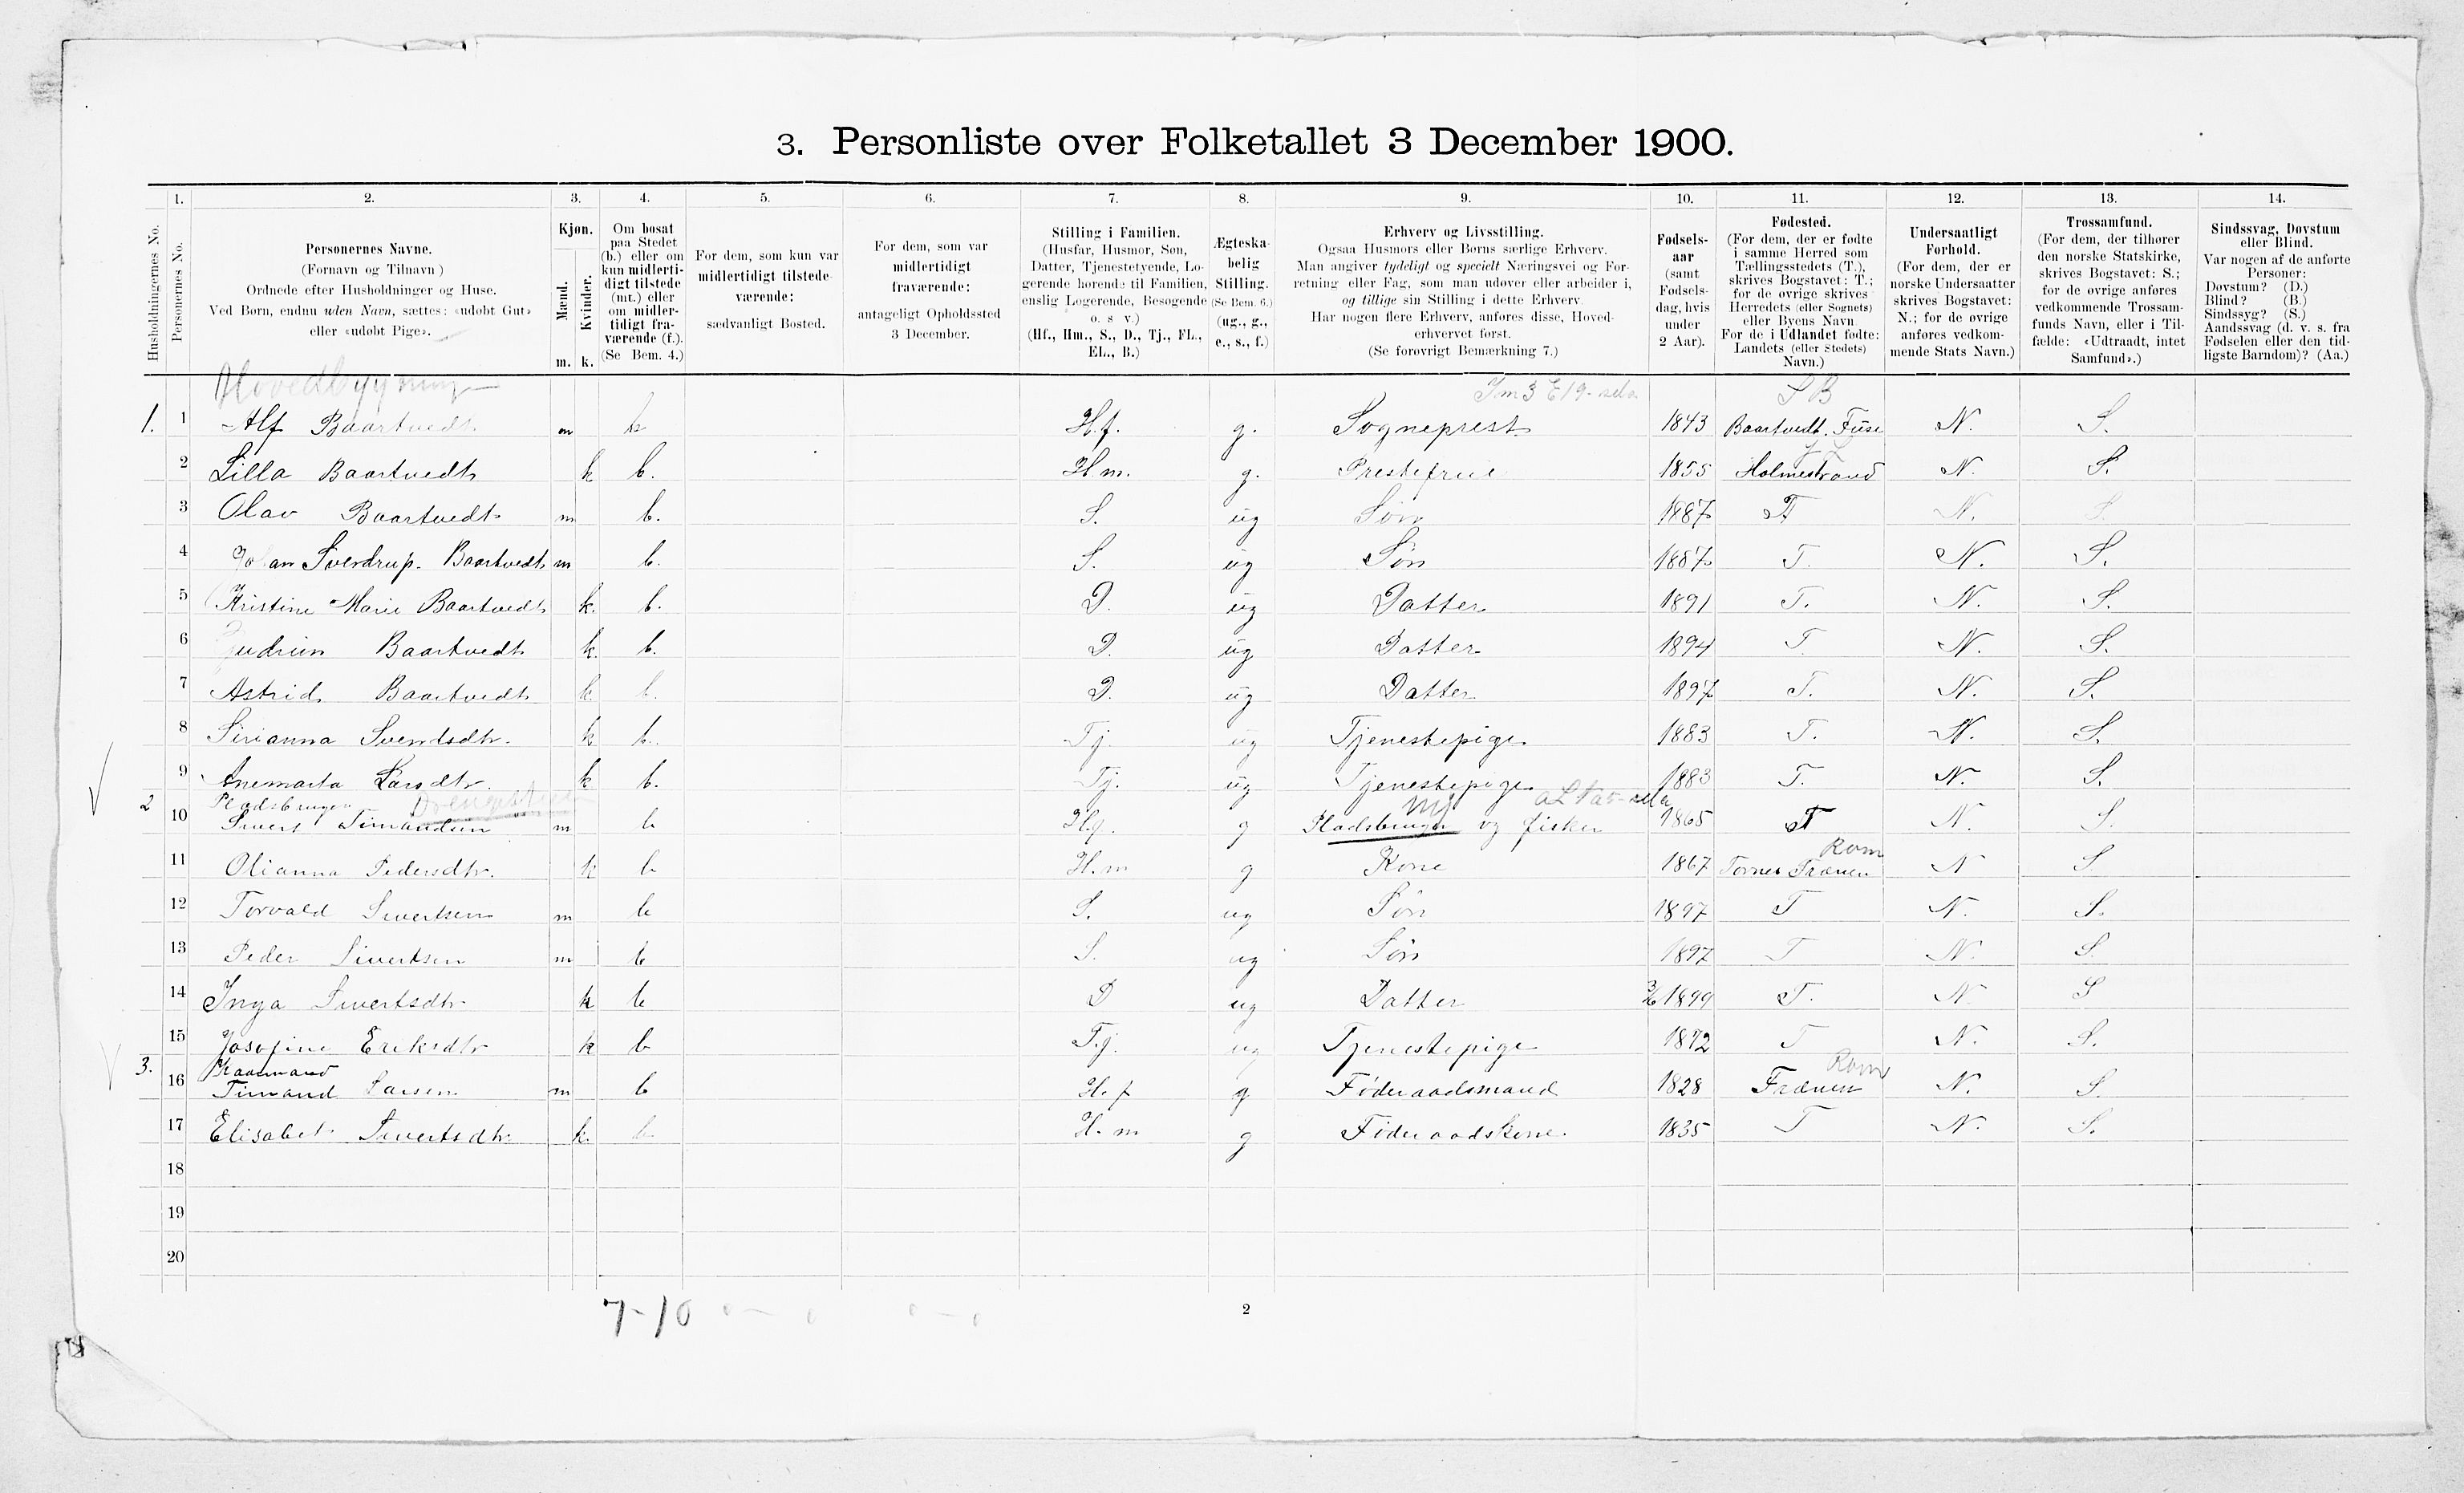 3. Personliste over Folketallet 3 December 1900.
1. 2. 3. 4. 5. 6. 7. 8. 9. 10. 11. 12. 13. 14.
Husholdningernes No.
Personernes No.
Personernes Navne.
(Fornavn og Tilnavn)
Ordnede efter Husholdninger og Huse.
Ved Børn, endnu uden Navn, sættes: «udøbt Gut»
eller «udøbt Pige».
Kjøn.
Mænd.
Kvinder.
m. k.
Om bosat
paa Stedet
(b.) eller om
kun midlerti-
digt tilstede
(mt.) eller
om midler-
tidigt fra-
værende (f.).
(Se Bem. 4.)
For dem, som kun var
midlertidigt tilstede-
værende:
sædvanligt Bosted.
For dem, som var
midlertidigt
fraværende:
antageligt Opholdssted
3 December.
Stilling i Familien.
(Husfar, Husmor, Søn,
Datter, Tjenestetyende, Lo-
gerende hørende til Familien,
enslig Logerende, Besøgende
o. s. v.)
(Hf., Hm., S., D., Tj., FL.,
EL., B.)
Ægteska-
belig
Stilling.
(Se Bem. 6.)
(ug., g.,
e., s., f.)
Erhverv og Livsstilling.
Ogsaa Husmors eller Børns særlige Erhverv.
Man angiver tydeligt og specielt Næringsvei og For-
retning eller Fag, som man udøver eller arbeider i,
og tillige sin Stilling i dette Erhverv.
Har nogen flere Erhverv, anføres disse, Hoved-
erhvervet først.
(Se forøvrigt Bemærkning 7.)
Fødsels-
aar
(samt
Fødsels-
dag, hvis
under
2 Aar).
Fødested.
(For dem, der er fødte
i samme Herred som
Tællingsstedets (T.),
skrives Bogstavet: T.;
for de øvrige skrives
Herredets (eller Sognets)
eller Byens Navn
For de i Udlandet fødte:
Landets (eller Stedets)
Navn.)
Undersaatligt
Forhold.
(For dem, der er
norske Undersaatter
skrives Bogstavet:
N.; for de øvrige
anføres vedkom-
mende Stats Navn.)
Trossamfund.
(For dem, der tilhører
den norske Statskirke,
skrives Bogstavet: S.;
for de øvrige anføres
vedkommende Trossam-
funds Navn, eller i Til-
fælde: «Udtraadt, intet
Samfund».)
Sindssvag, Døvstum
eller Blind.
Var nogen af de anførte
Personer:
Døvstum? (D.)
Blind? (B.)
Sindssyg? (S.)
Aandssvag (d. v. s. fra
Fødselen eller den tid-
ligste Barndom)? (Aa.)
Hovedbygning S B
1. 1 Alf Baartvedt m b H.f. g. Sogneprest 1843 Baartvedt. Fuse N. S.
2 Lilla Baartvedt k b. H.m. g. Prestefrue 1855 Holmestrand N. S.
3 Olav Baartvedt m b. S. ug Søn 1887 T N. S.
4 Johan Sverdrup Baartvedt m b. S. ug Søn 1887 T. N. S.
5 Kristine Marie Baartvedt k. b. D. ug Datter 1891 T. N. S.
6 Gudrun Baartvedt k. b. D. ug Datter 1894 T. N. S.
7 Astrid Baartvedt k. b. D. ug Datter 1897 T. N. S.
8 Sirianna Svendsdtr. k b. Tj. ug Tjenestepige 1883 T. N. S.
9 Anemarta Larsdtr. k b. Tj. ug Tjenestepige 1883 T. N. S.
2 Pladsbruger
10 Sivert Timandsen m b H.f. g Pladsbruger og fisker 1865 T N. S
Rom
11 Olianna Pedersdtr. k b H.m g Kone 1867 Tornes Frænen N S
12 Torvald Sivertsen m b S. ug Søn 1897 T N. S.
13 Peder Sivertsen m b S. ug Søn 1897 T N. S
14 Inga Sivertsdtr. k b D ug Datter 3/6 1899 T. N S
15 Josofine Eriksdtr k b T.j. ug Tjenestepige 1872 T N. S.
3. Kaarmand Rom
16 Timand Larsen m b H.f g Føderaadsmand 1828 Frænen N. S.
17 Elisabet Sivertsdtr. k. b H.m g Føderaadskone. 1835 T N. S.
18
19
20
7-10 0 - 0 0 - 0
2